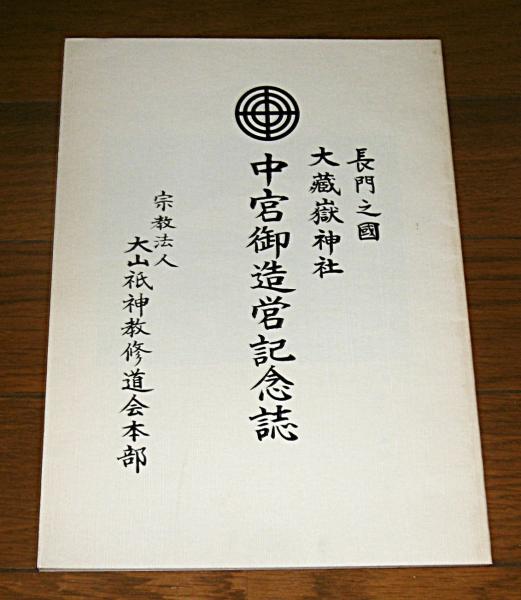 長門之國
大藏嶽神社
中宮御造営記念誌
宗教法人
大山祇神教修道会本部